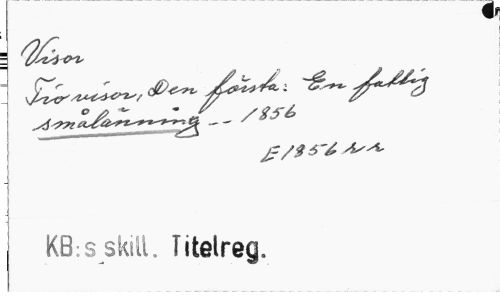 Visor
Tio visor, Den första: En fattig
smålänning -- 1856
E1856 r r
KB:s skill. Titelreg.